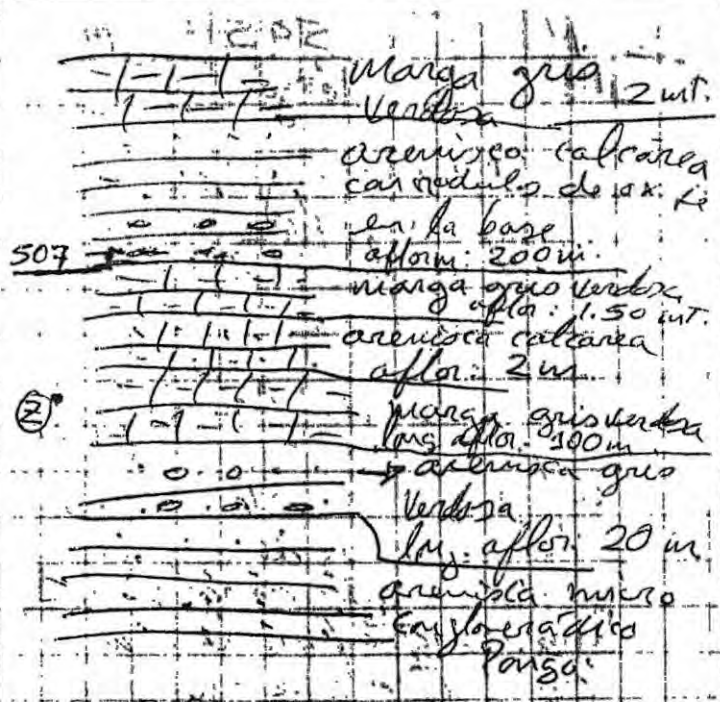 marga gris
verdosa 2 mt.
arenisca calcárea
con nódulos de ox. fe
en la base
507 aflorm: 200 m.
marga gris verdosa
aflor: 1.50 mt.
arenisca calcarea
aflor: 2 m
Z
marga gris verdosa
lng aflor. 300 m
arenisca gris
verdosa
lng. aflor. 20 m
arenisca micro
conglomerádico